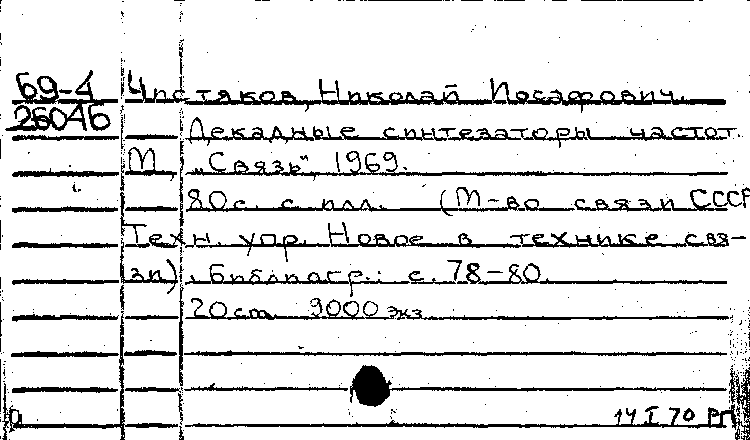 69-4 Чистяков, Николай Иосафович.
26046 Декадные синтезаторы частот.
М., „Связь", 1969.
80с. с илл. (М-во связи СССР
Техн. упр. Новое в технике свя-
зи). Библиогр.: с. 78-80.
20см 9000 экз
14 I 70